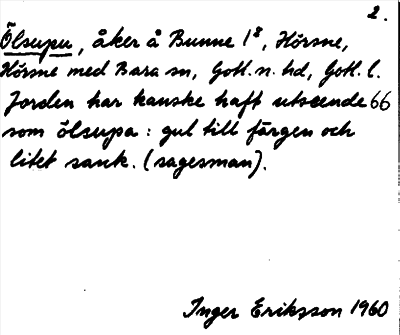 2.
Ölsupu, åker å Bunne 1⁸, Hörsne,
Hörsne med Bara sn, Gotl. n. hd, Gotl. l.
Jorden har kanske haft utseende 66
som ölsupa: gul till färgen och
litet sank. (sagesman).
Inger Eriksson 1960